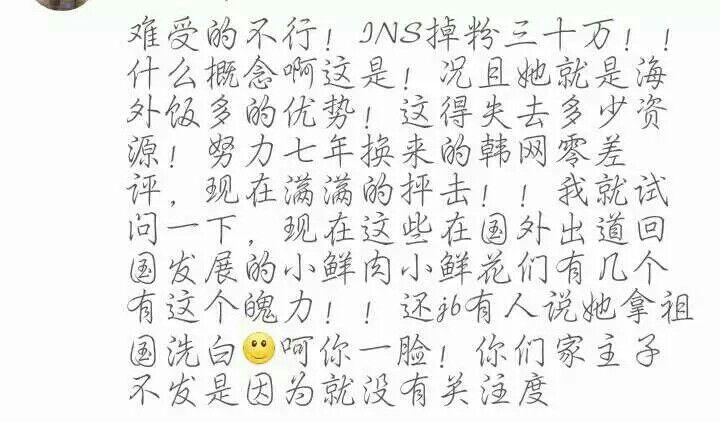 难受的不行！INS掉粉三十万！！
什么概念啊这是！况且她就是海
外饭多的优势！这得失去多少资
源！努力七年换来的韩网零差
评，现在满满的抨击！！我就试
问一下，现在这些在国外出道回
国发展的小鲜肉小鲜花们有几个
有这个魄力！！还jb有人说她拿祖
国洗白🙂呵你一脸！你们家主子
不发是因为就没有关注度